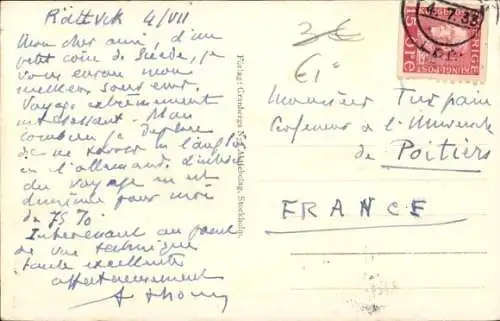 Rättvik 4/VII
Mon cher ami, d'un
petit coin de Suède, je
vous envoie mon
meilleur souvenir.
Voyage extrêmement
intéressant. Mais
combien je déplore
de ne savoir ni l'anglais
ni l'allemand. L'intérêt
du voyage en est
diminué pour moi
de 75 %
Intéressant au point
de vue technique
toute excellente
affectueusement
Förlag: Granbergs Nya Aktiebolag, Stockholm.
7.33
SVERIGE
15 ÖRE
3€
€1
Monsieur Turpain
Professeur à l'Université
de Poitiers
FRANCE